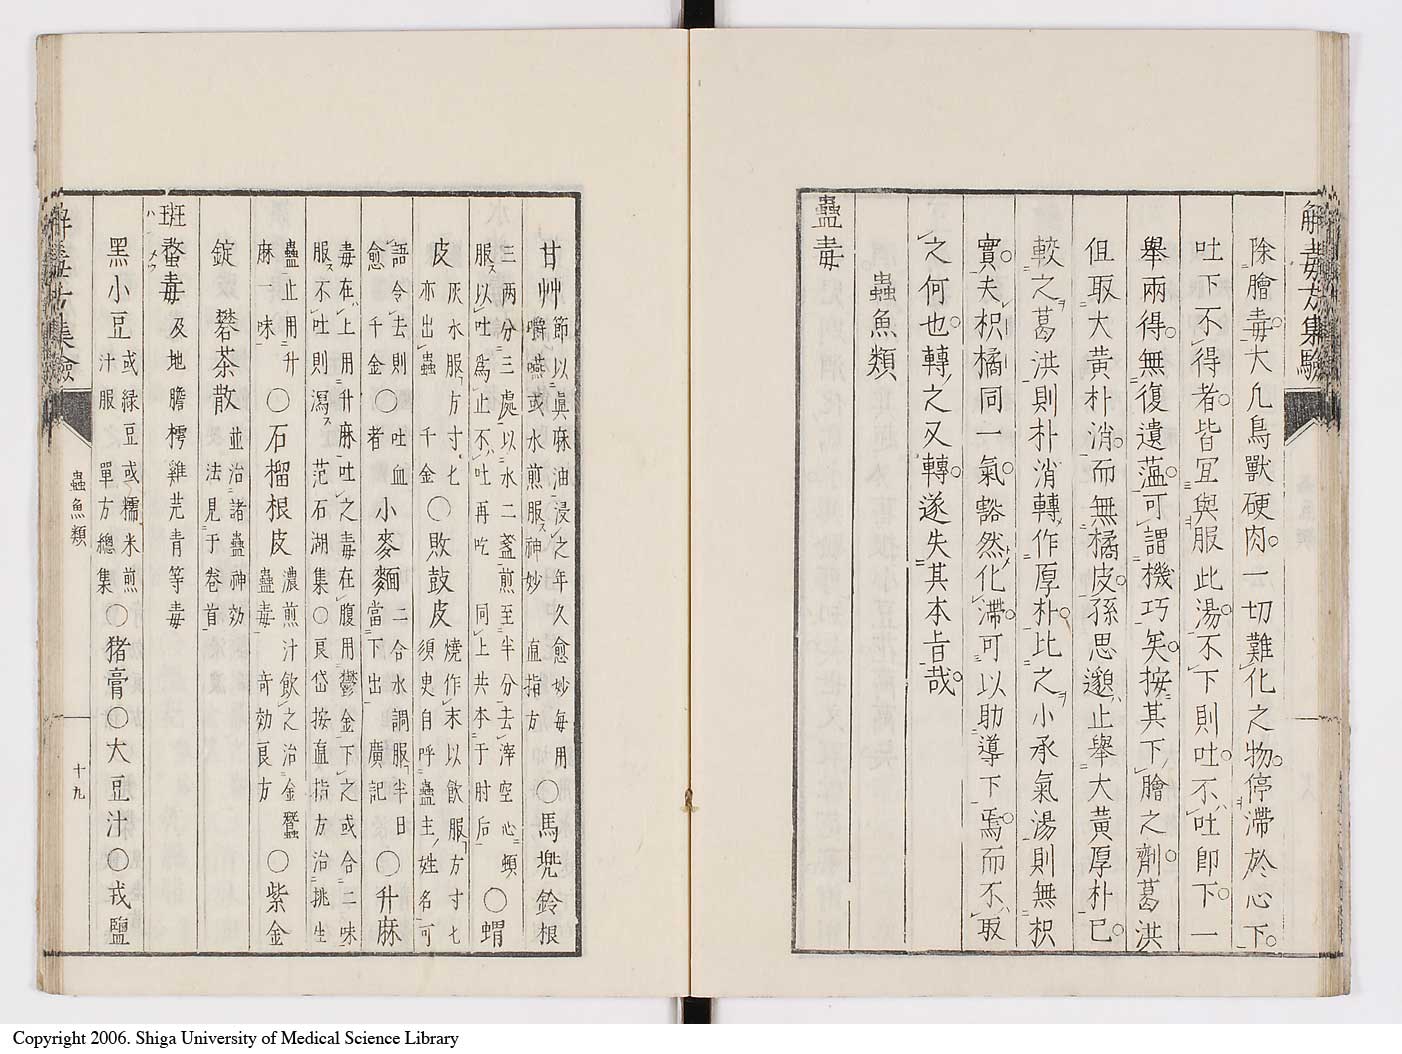 解毒方集驗
除膾毒大凡鳥獸硬肉一切難化之物停滯於心下
吐下不得者皆宜與服此湯不下則吐不吐卽下一
舉兩得無復遺薀可謂機巧矣按其下膾之劑葛洪
但取大黃朴消而無橘皮孫思邈止舉大黃厚朴已
較之葛洪則朴消轉作厚朴比之小承氣湯則無枳
實夫枳橘同一氣豁然化滯可以助導下焉而不取
之何也轉之又轉遂失其本旨哉
蟲魚類
蠱毒
甘艸節以眞麻油浸之年久愈妙每用
嚼嚥或水煎服神妙 直指方○馬兜鈴根
三兩分三處以水二盞煎至半分去滓空心頓
服以吐爲止不吐再吃 同上共本于肘后○蝟
皮灰水服方寸七
亦出蟲 千金○敗鼓皮燒作末以飲服方寸七
須臾自呼蠱主姓名可
語令去則
愈 千金○吐血者小麥麵二合水調服半日
當下出 廣記○升麻
毒在上用升麻吐之毒在腹用鬱金下之或合二味
服不吐則瀉 范石湖集○良岱按直指方治挑生
蠱止用升
麻一味○石榴根皮濃煎汁飲之治金蠶
蠱毒 奇効良方○紫金
錠 礬茶散並治諸蠱神効
法見于卷首
斑蝥毒及地膽樗雞芫青等毒
黑小豆或綠豆或糯米煎
汁服之 單方總集○猪膏○大豆汁○戎鹽
解毒方集驗
蟲魚類
十九
Copyright 2006. Shiga University of Medical Science Library